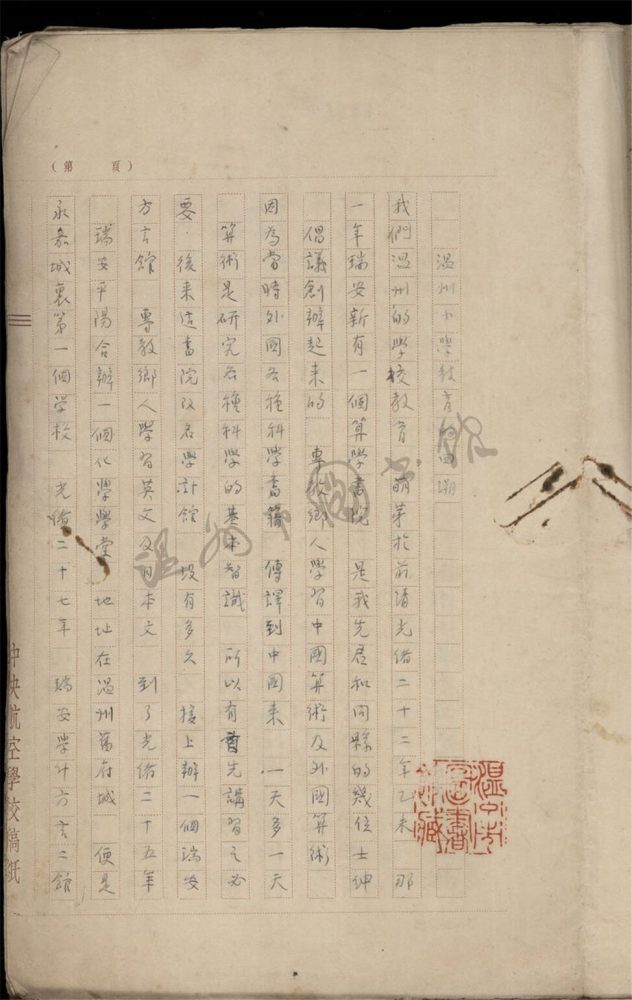 （第　頁）
温州小學教育的回溯
我們温州的學校教育萌芽於前清光緒二十二年乙未　那
一年瑞安新有一個算學書院　是我先君和同縣的幾位士紳
倡議創辦起来的　專教鄉人學習中國算術及外國算術
因為當時外國各種科學書籍　傳譯到中國来　一天多一天
算術是研究各種科學的基本智識　所以有首先講習之必
要．後来這書院改名學計館　没有多久　接上辦一個瑞安
方言館　專教鄉人學習英文及日本文　到了光緒二十五年
瑞安平陽合辦一個化學學堂　地址在温州舊府城　便是
永嘉城裏第一個學校　光緒二十七年　瑞安學計方言二館
中央航空學校稿紙
温州市圖書館藏
温州市圖書館